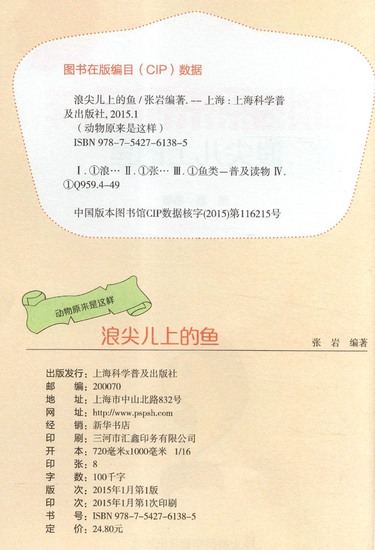 图书在版编目（CIP）数据
浪尖儿上的鱼 / 张岩编著. -- 上海 : 上海科学普
及出版社, 2015.1
（动物原来是这样）
ISBN 978-7-5427-6138-5
Ⅰ. ①浪… Ⅱ. ①张… Ⅲ. ①鱼类—普及读物 Ⅳ.
①Q959.4-49
中国版本图书馆CIP数据核字(2015)第116215号
动物原来是这样
浪尖儿上的鱼
张 岩 编著
出版发行: 上海科学普及出版社
邮 编: 200070
地 址: 上海市中山北路832号
网 址: http://www.pspsh.com
经 销: 新华书店
印 刷: 三河市汇鑫印务有限公司
开 本: 720毫米x1000毫米 1/16
印 张: 8
字 数: 100千字
版 次: 2015年1月第1版
印 次: 2015年1月第1次印刷
书 号: ISBN 978-7-5427-6138-5
定 价: 24.80元